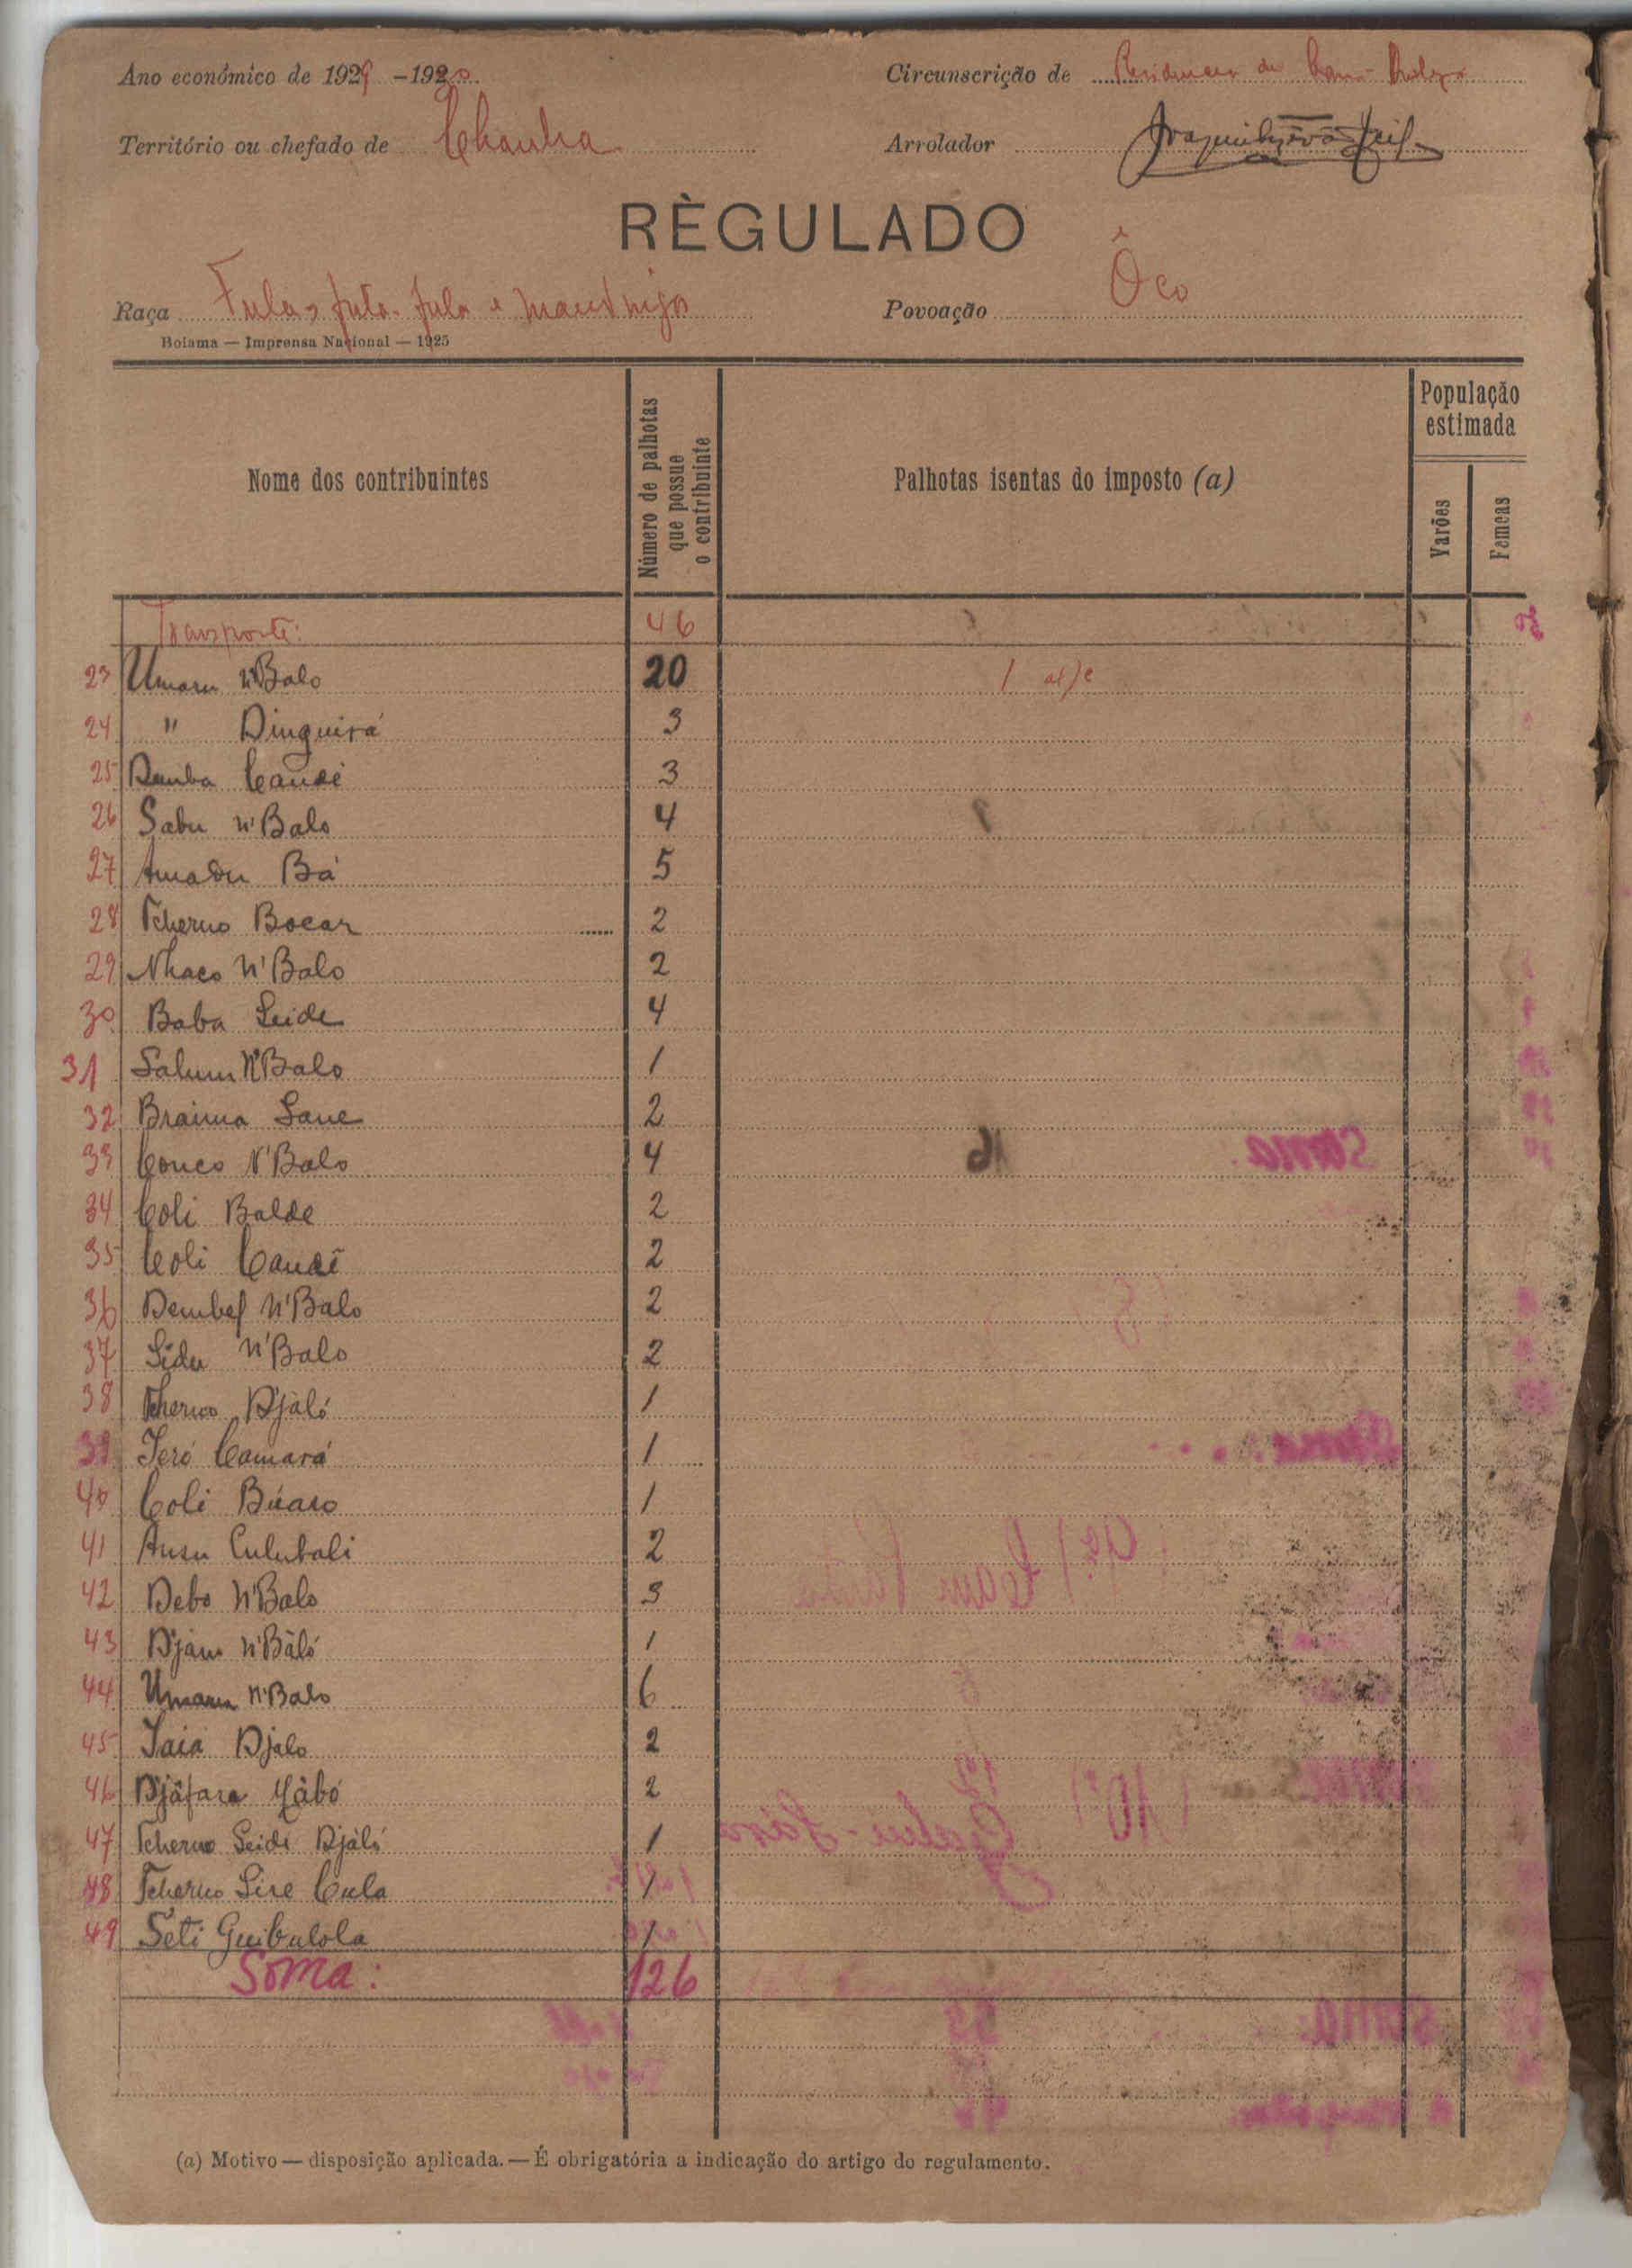 Ano económico de 1929 -1930
Circunscrição de Residencia de
Território ou chefado de Chanha
Arrolador
RÈGULADO
Raça Fulas, futa-fula e mandinga
Povoação Ôco
Bolama — Imprensa Nacional — 1925
Nome dos contribuintes
Número de palhotas que possue o contribuinte
Palhotas isentas do imposto (a)
População estimada
Varões
Femeas
Transporte: 46
23 Umaru N'Balo 20 1 al/e
24 " Dinguirá 3
25 Demba Candé 3
26 Sabu N'Balo 4
27 Amadu Bá 5
28 Tcherno Bocar 2
29 Nhaco N'Balo 2
30 Baba Seide 4
31 Salum N'Balo 1
32 Braima Sane 2
33 Couco N'Balo 4
34 Coli Balde 2
35 Coli Candé 2
36 Dembel N'Balo 2
37 Sidu N'Balo 2
38 Tcherno Djaló 1
39 Iero Camará 1
40 Coli Búaro 1
41 Ansu Culubali 2
42 Debo N'Balo 3
43 Djam N'Báló 1
44 Umaru N'Balo 6
45 Iaia Djalo 2
46 Djáfara Gábó 2
47 Tcherno Seidi Djáló 1
48 Tcherno Sire Cula 1
49 Seti Guibulola 1
Soma: 126
(a) Motivo — disposição aplicada. — É obrigatória a indicação do artigo do regulamento.